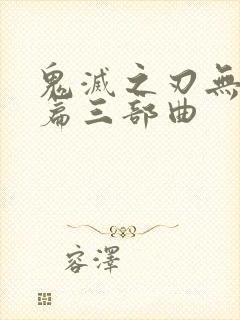 鬼滅之刃無
篇三部曲
容澤